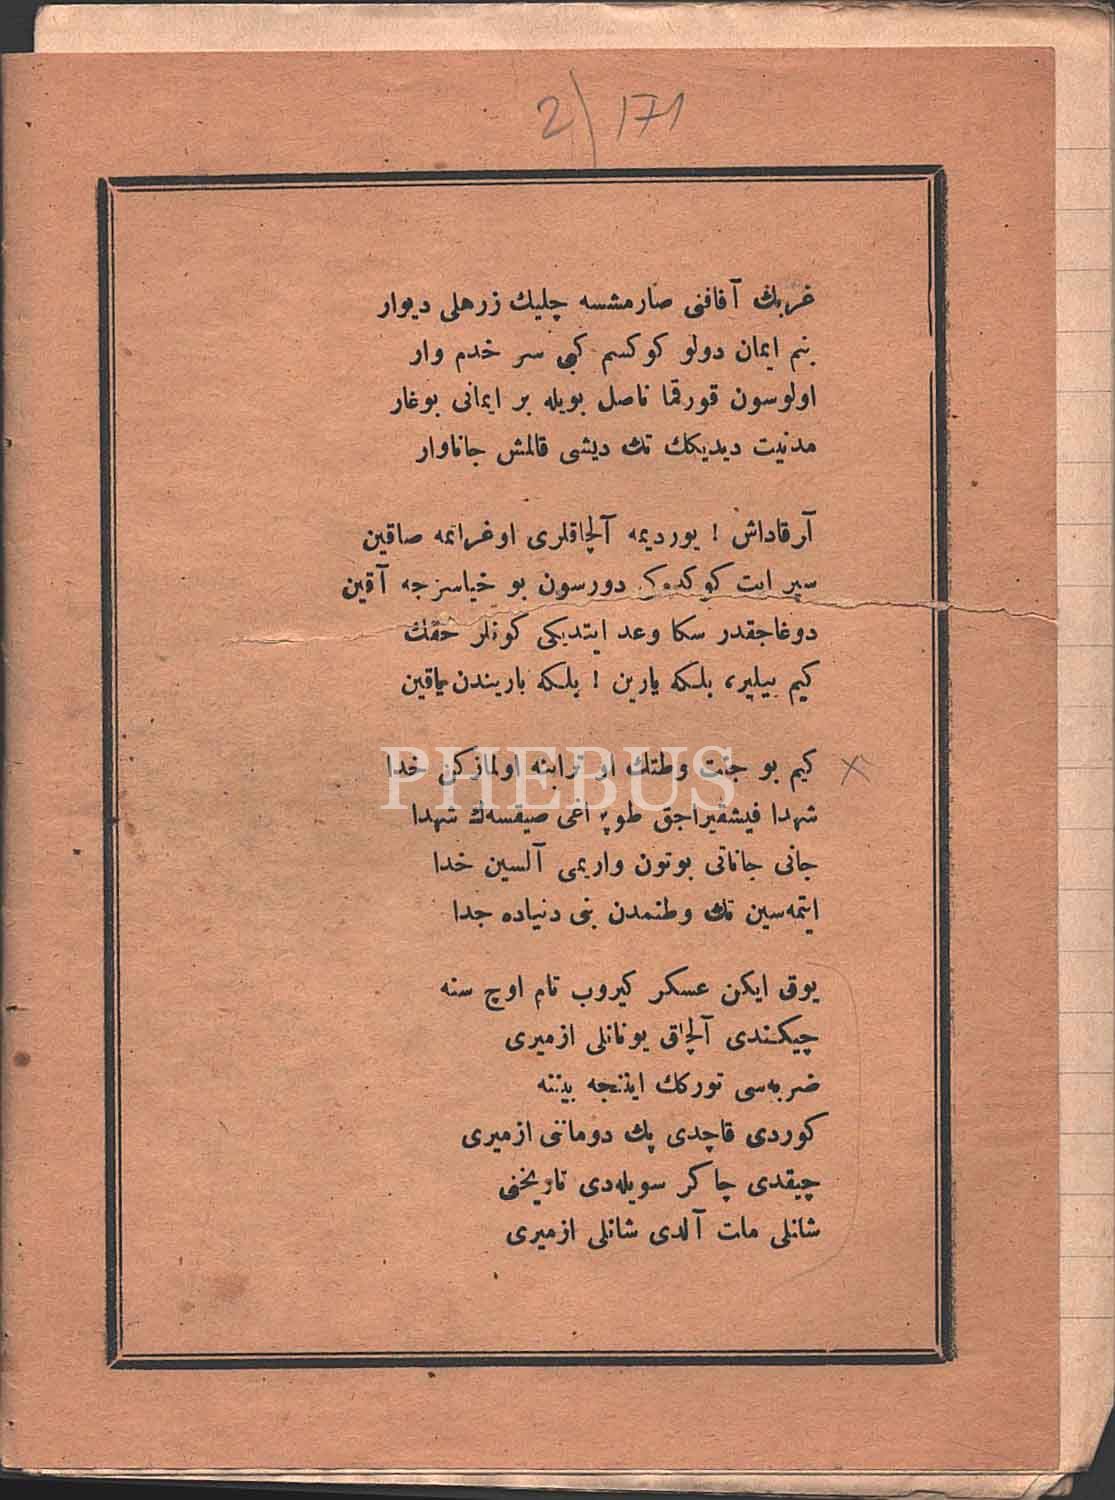 2/171
غربك آفاقنی صارمشسه چلیك زرهلی دیوار
بنم ایمان دولو كوكسم كبی سر خدم وار
اولوسون قورقما ناصل بویله بر ایمانی بوغار
مدنیت دیدیكك تك دیشی قالمش جاناوار
آرقاداش ! یوردیمه آلچاقلری اوغراتمه صاقین
سپر ایت دورسون بو حیاسزجه آقین
دوغاجقدر سكا وعد ایتدیكی كونلر حقك
كیم بیلیر، بلكه یارین ! بلكه یاریندن یاقین
كیم بو جنت وطنك اوغرابنه اولمازكن خدا
شهدا فیشقیراجق طوپراغی صیقسه‌ك شهدا
جانی جانانی بوتون واریمی آلسین خدا
ایتمه‌سین تك وطنمدن بنی دنیاده جدا
یوق ایكن عسكر كیروب تام اوچ سنه
چیكندی آلچاق یونانلی ازمیری
ضربه‌سی توركك ایننجه بیننه
كوردی قاچدی پك دوماننی ازمیری
چیقدی چاكر سویله‌دی تاریخنی
شانلی ملت آلدی شانلی ازمیری
PHEBUS